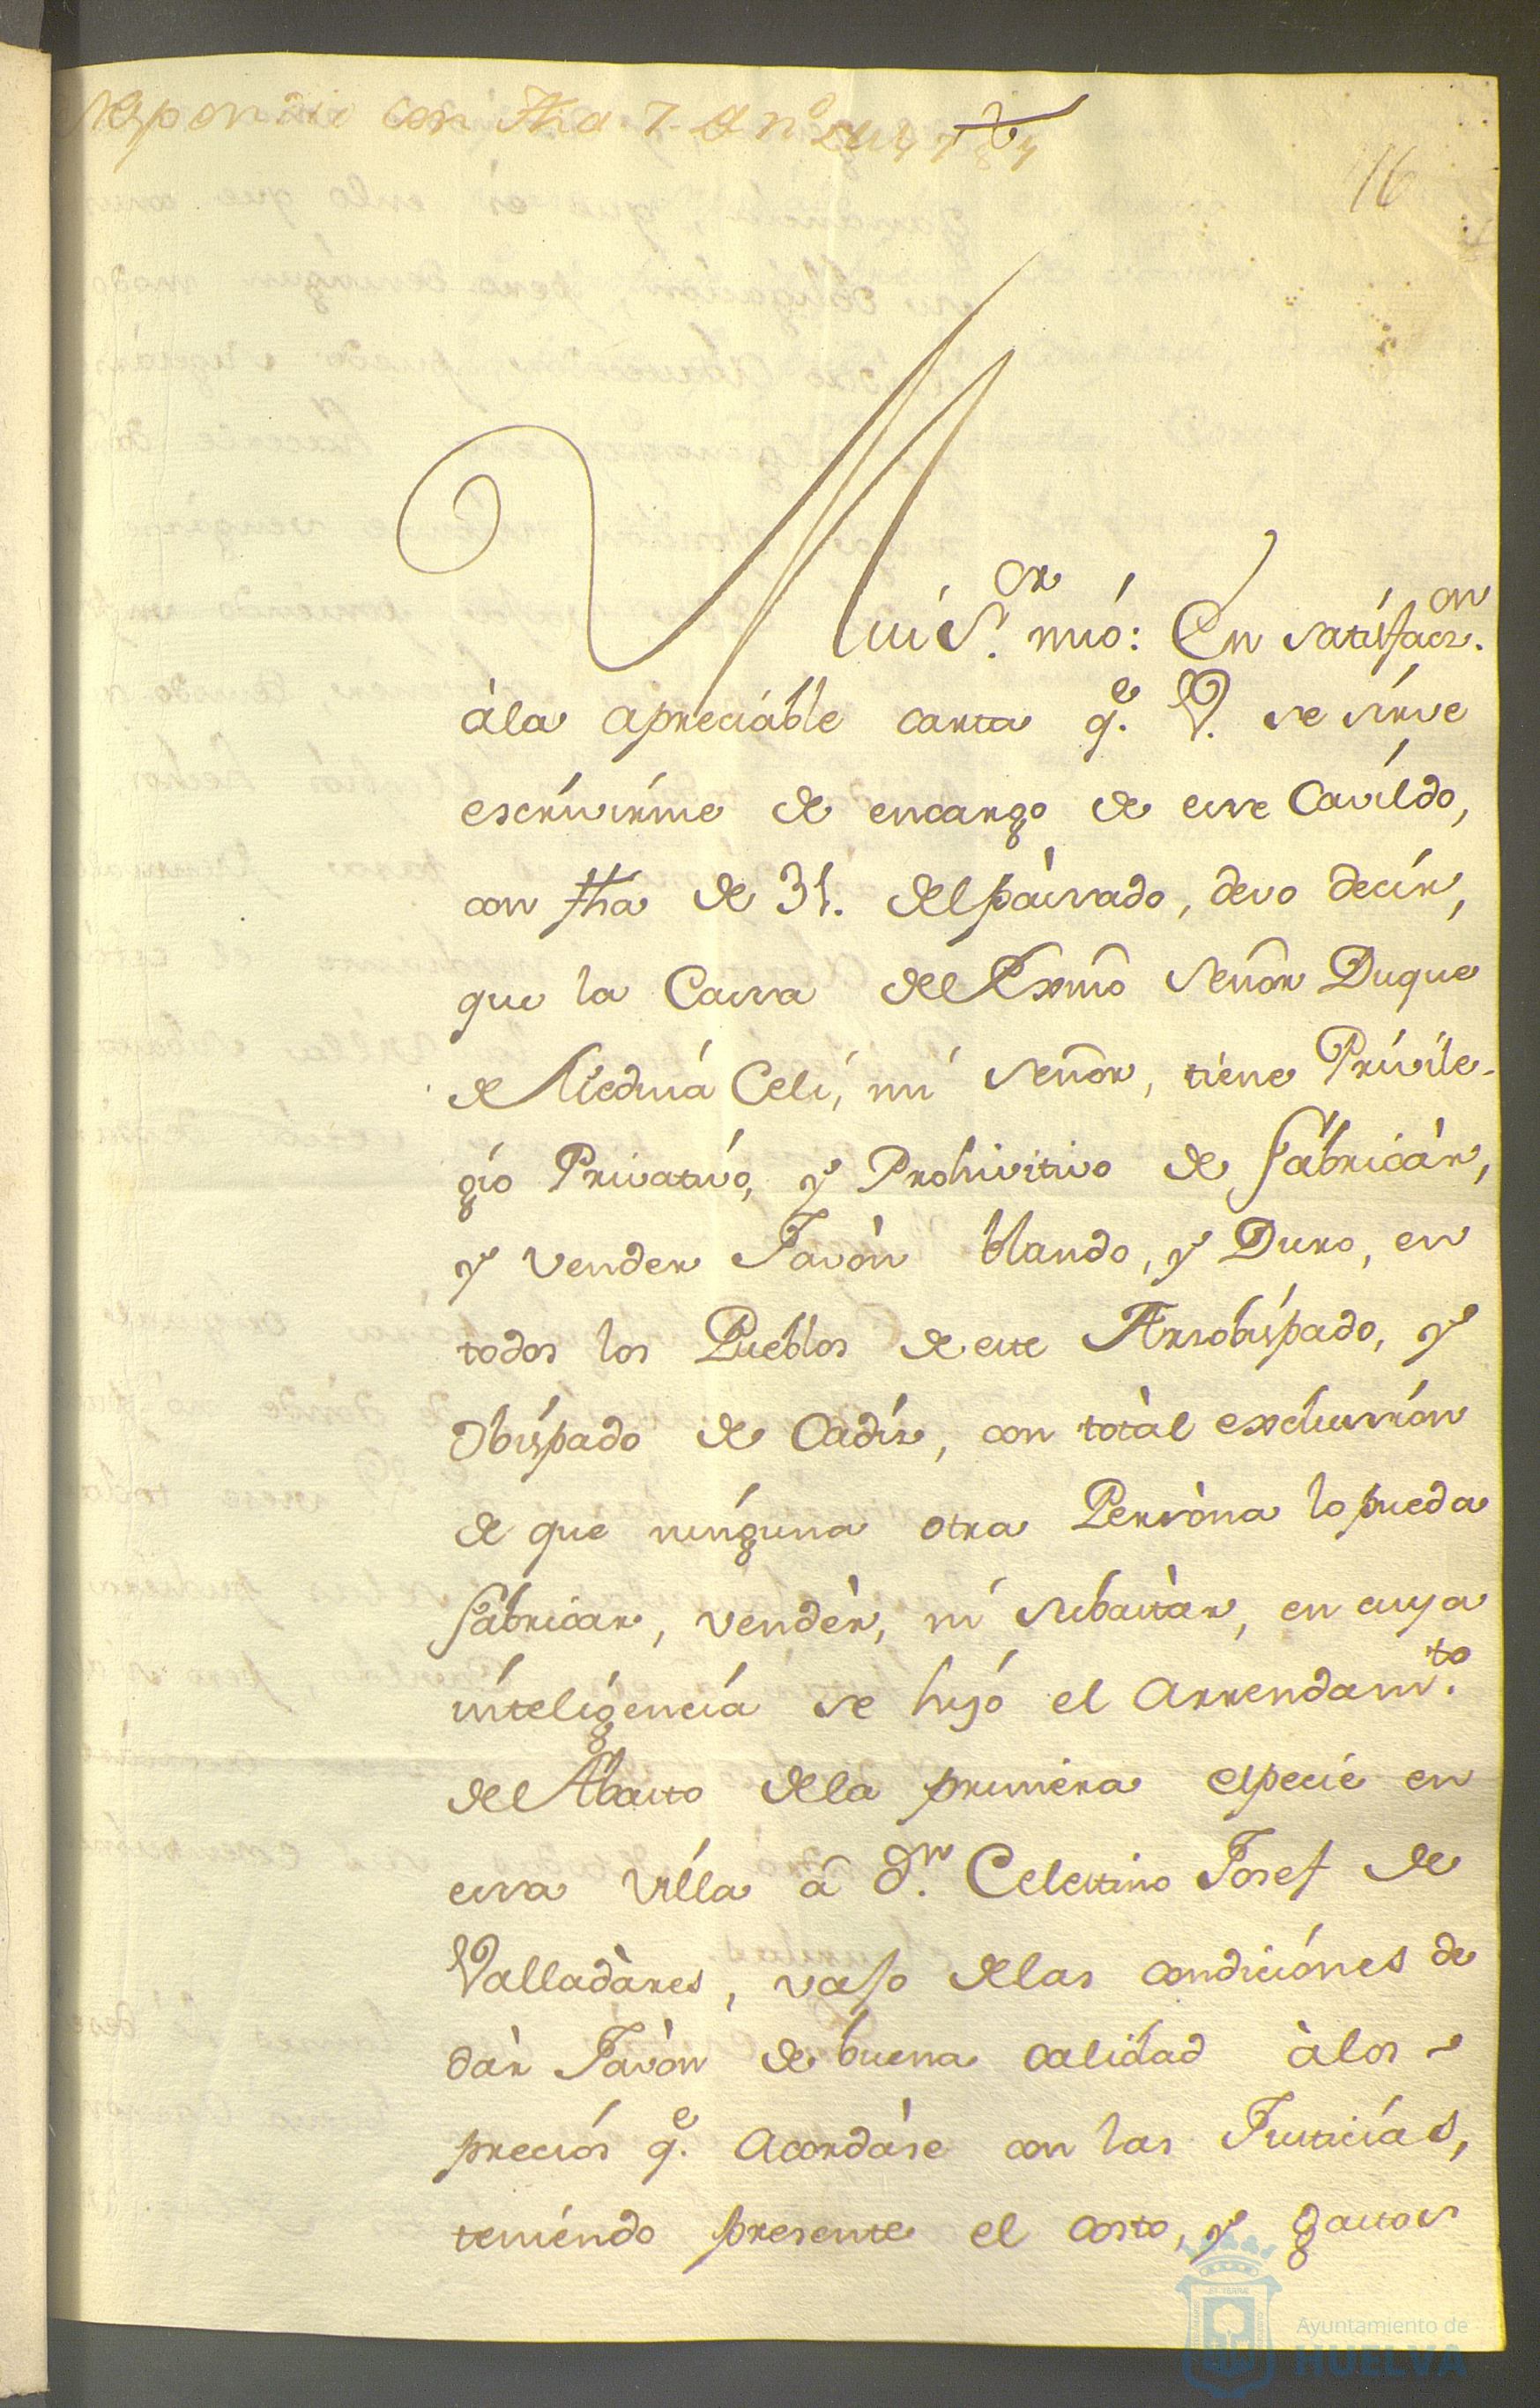 con fha 7 de
16
Mui S.or mio: En satisfacz.on
àla apreciáble carta q.e V. se sírve
escrívírme de encargo de ese Cavíldo,
con fha de 31. del pàssado, devo decír,
que la Cassa del Exmô Señor Duque
de Mediná Celi, mi Señor, tiene Prívile-
gío Privatívo, y Prohivitivo de fábricàr,
y vender Javòn blando, y Duro, en
todos los Pueblos de este Arsobíspado, y
Obíspado de Cadís, con totàl exclussíon
de que nínguna otra Persòna lo pueda
fabricar, vendèr, ní subastàr, en cuya
ínteligenciá se hízó el Arrendam.to
del Abasto dela primera especie en
essa Villa â D.n Celestino Josef de
Valladàres, vajo delas condiciónes de
dàr Javòn de buena calidad àlos
preciós q.e acordàse con las Justiciás,
teniéndo presente el costo, y gastos
Ayuntamiento de
HUELVA